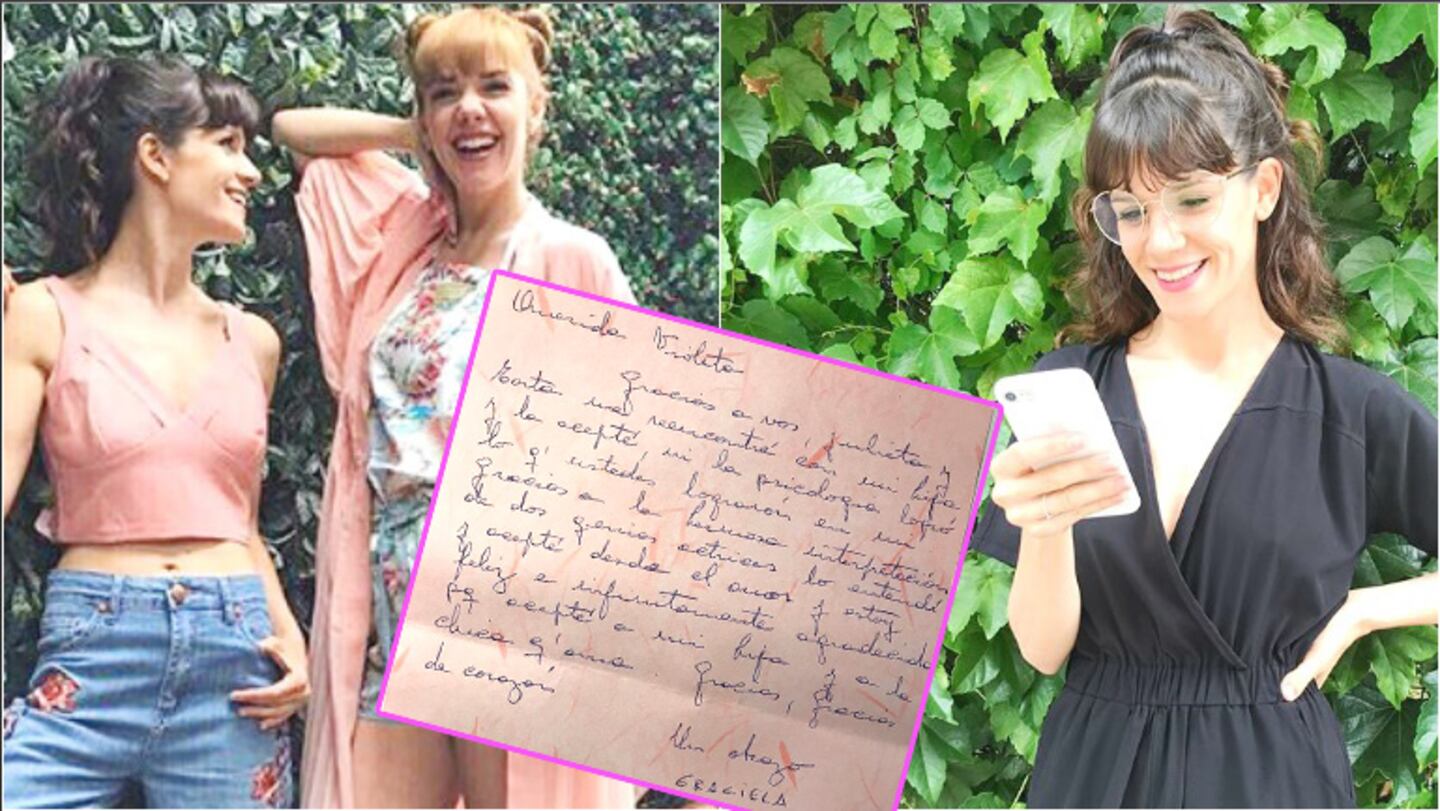 Querida Violeta
Gracias a vos, Julieta y
me reencontré con mi hija
y la acepté ni la psicologa logró
lo q' ustedes lograron en mi
gracias a la hermosa interpretación
de dos genias actrices lo entendí
y acepté desde el amor y estoy
feliz e infinitamente agradecida
pq acepté a mi hija y a la
chica q' ama. Gracias, gracias
de corazón
Un abrazo
GRACIELA